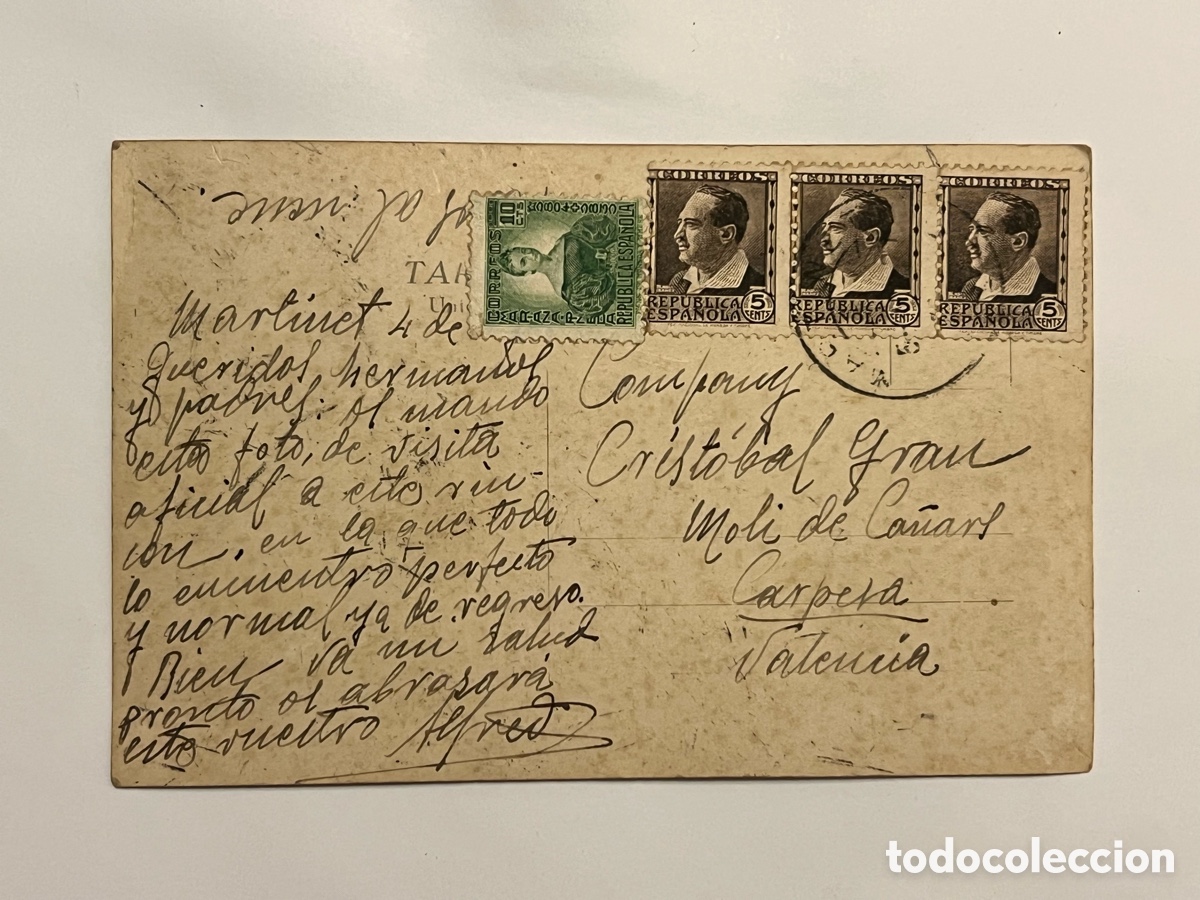 al
TAR
CORREOS
10 CTS
MARIANA PINEDA
REPUBLICA ESPAÑOLA
CORREOS
REPUBLICA ESPAÑOLA
5 CENTS
CORREOS
REPUBLICA ESPAÑOLA
5 CENTS
CORREOS
REPUBLICA ESPAÑOLA
5 CENTS
Martinet 4 de
Queridos hermanos
y padres: os mando
esta foto, de visita
oficial a este rin-
con. en la que todo
lo encuentro perfecto
y normal ya de regreso.
Bien va mi salud
pronto os abrasará
este vuestro Alfred
Company
Cristóbal Grau
Moli de Cañars
Carpesa
Valencia
todocoleccion